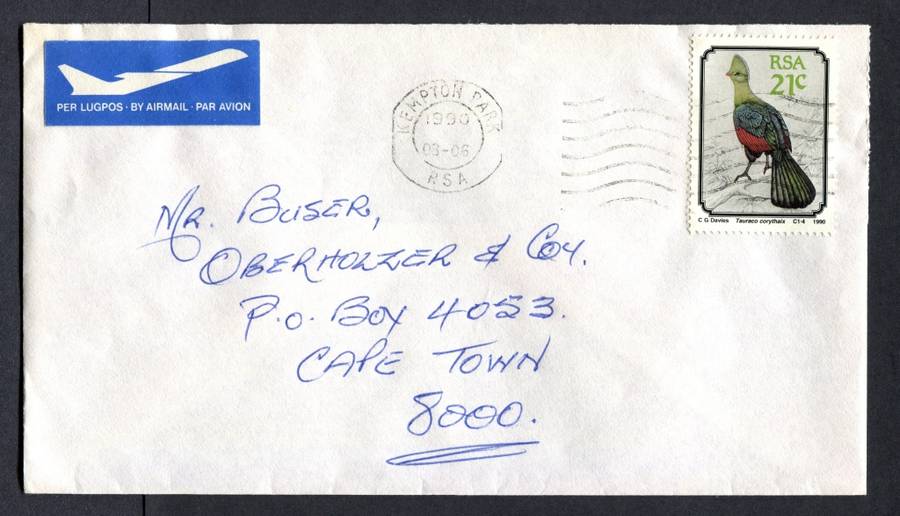 PER LUGPOS · BY AIRMAIL · PAR AVION
KEMPTON PARK
1990
08-06
RSA
RSA
21c
C G Davies Tauraco corythaix C1-4 1990
Mr. Buser,
Oberholzer & Coy.
P.O. Box 4053.
Cape Town
8000.